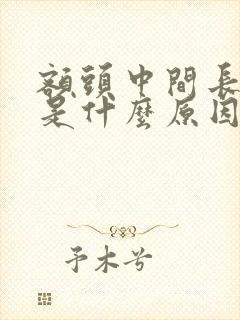 額頭中間長
是什麼原因
予木兮